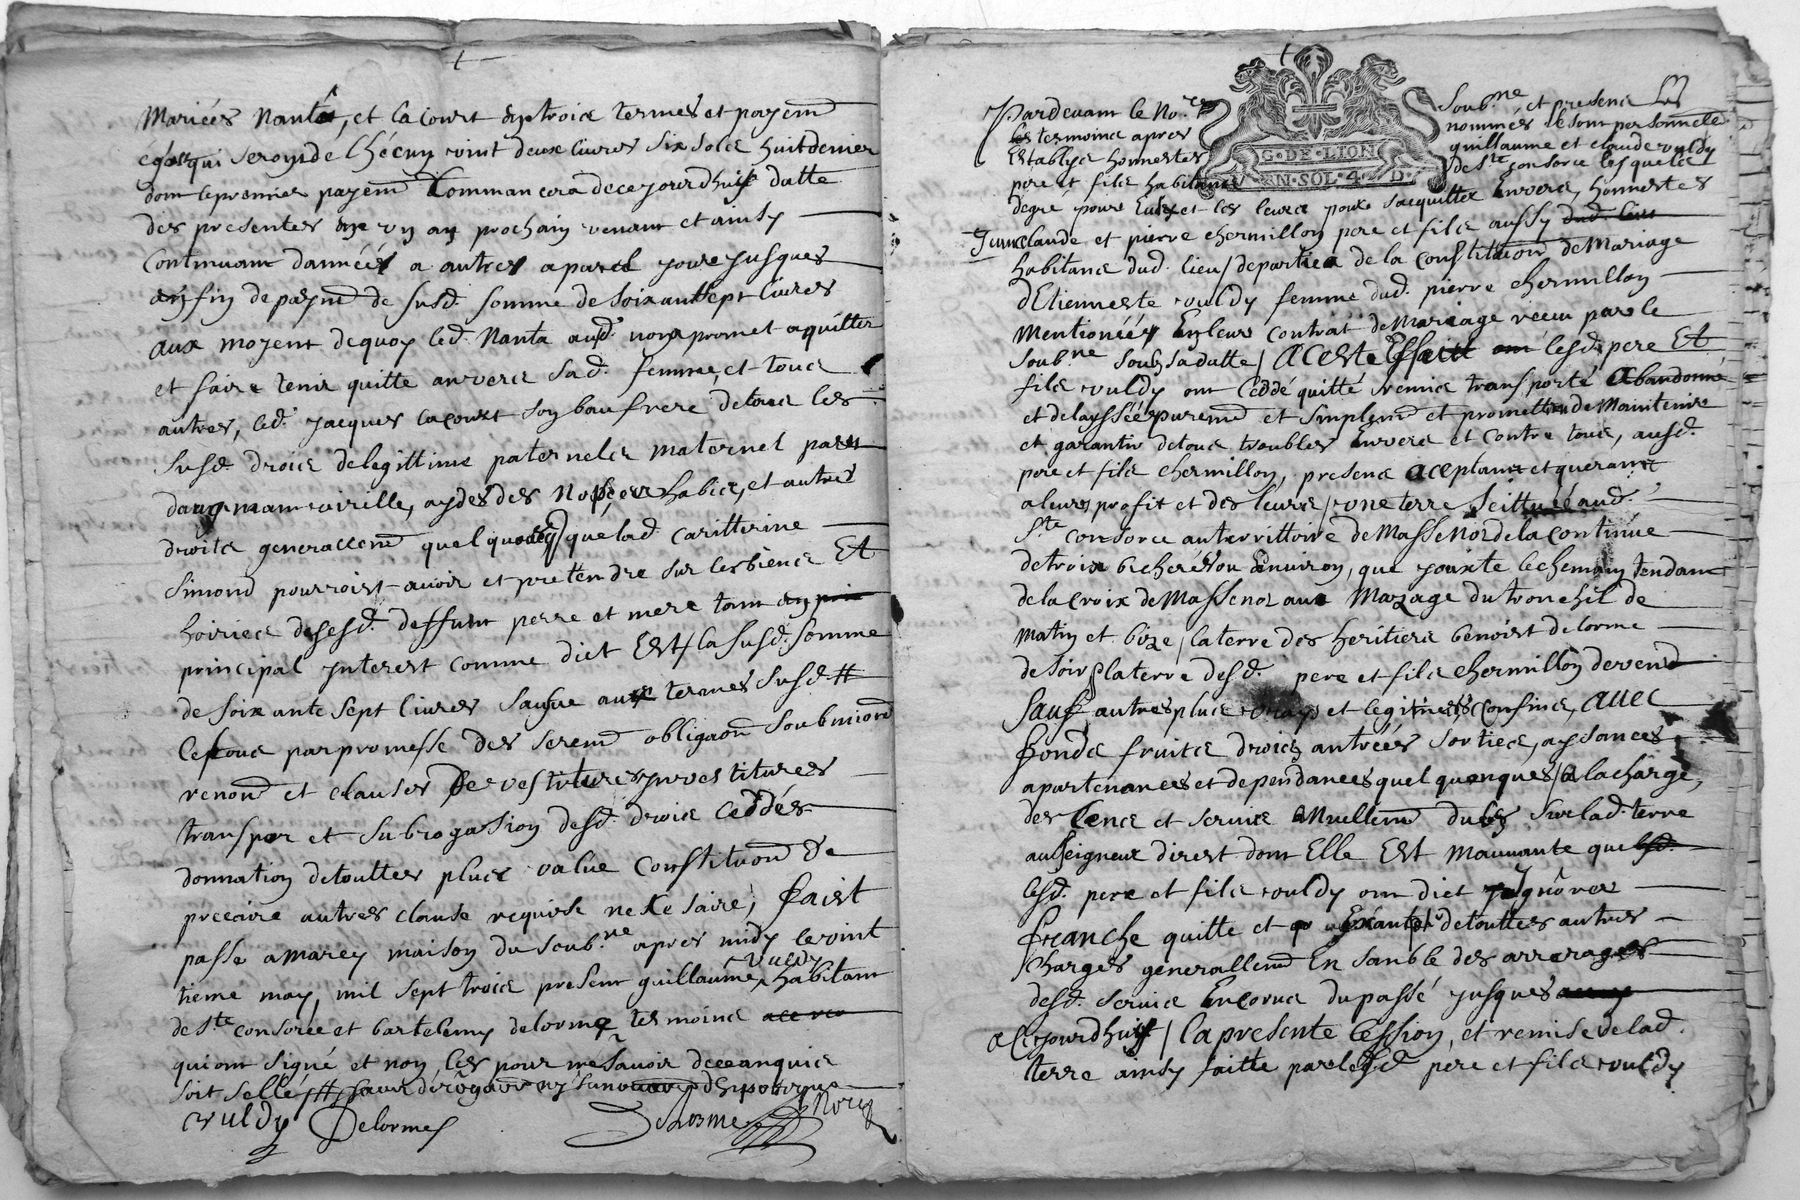 Mariées Nanta, et Lacourt en trois termes et payem
egaux qui seron de chécun vint deux livres six sols huit denier
dont le premier payem commancera de ce jourd'huy datte
des presentes en un an prochain venant et ainsy
continuant d'année a autres a pareil jour jusques
en fin de payem de susd. somme de soixant sept livres
aux moyent de quoy led. Nanta aud. nom promet aquitter
et faire tenir quitte anvers sad. femme, et tous
autres, led. Jacques Lacourt son baufrere de tous les
susd. droits de legittime paternels maternel part
d'augmant virille, aydes des nopces habits, et autres
droits generallem quelquonq que lad. Catterine
Simond pourroist avoir et pretendre sur les biens Et
hoiries desesd. deffunt perre et mere tant en
principal ynterest comme dict Est / la susd. somme
de soixante sept livres saufve aux termes susd. #
Ce tous par promesse des serem obligaon soubmiond
renond et clauses Devestitures ynvestitures
transpor et subrogasion desd. droits ceddés
donnation de touttes plus value constituond de
preecire autres clause requise ne Ke saire, Faict
passé a Marcy maison du soub.ne apres midy le vint
tieme may, mil sept trois present guillaume vuldy habitant
de Ste consorce et bartelemy delorme tesmoins
qui ont signé et non, les pour ne savoir de ce anquis
soit sellé /# sans dérogaon ny d'hipoteque
vuldy Delorme
Delorme Nore
G·DE·LION
EN·SOL·4·D
Pardevant le No.re soub.ne et presens Les
tesmoins apres nommés le sont personnelle
Establys honnestes guillaume et claude vuldy
pere et fils habitans de Ste consorce lesquels
degré pour Eux et les leurs pour sacquitter Envers, honnestes
claude et pierre chermillon pere et fils aussy
habitans dud. lieu / de partie de la constituiond de Mariage
d'Etiennette vuldy femme dud. pierre chermillon
Mentionéé En leur contrat de Mariage receu par le
soub.ne soubs sa datte / a ceste Effaict lesd. pere Et
fils vuldy ont ceddé quitté remis transporté abandonné
et delaysséé purem et simplem et promettre de Maintenir
et garantir de tous troubles Envers et contre tous, ausd.
pere et fils chermillon, presens aceptant et querant
a leurs profit et des leurs / une terre scittuéé aud.
Ste consorce au territtoire de Massenod de la continue
de trois bicherés ou Environ, que jouxte le chemain tendant
de la croix de Massenod aux Mazage du tronchil de
matin et bize / la terre des heritiers benoist delorme
de soir / la terre desd. pere et fils chermillon de vend
Sauf autres plus vrays et legitimes confins, avec
fonds fruits droits antréés sorties, aysances
apartenances et dependances quelquonques / a la charge,
des Cens et servis Anuellem dubs sur lad. terre
au seigneur direst dont Elle Est mouvante que
lesd. pere et fils vuldy ont dict ygnôrer
franche quitte et Exante de touttes autres
Charges generallem En sanble des arrerages
desd. servis Encorus du passé jusques
a ce jourdhuy / la presente cession, et remise de lad.
terre ainsy faitte par lesd. pere et fils vuldy